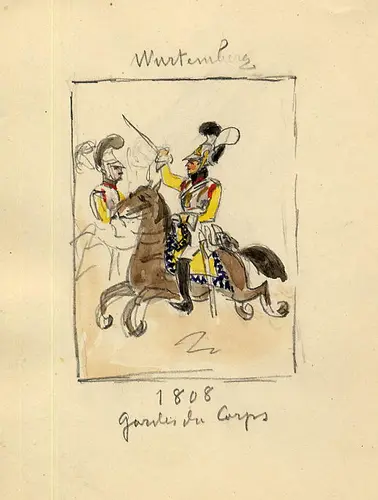 Wurtemberg
1808
Gardes du Corps